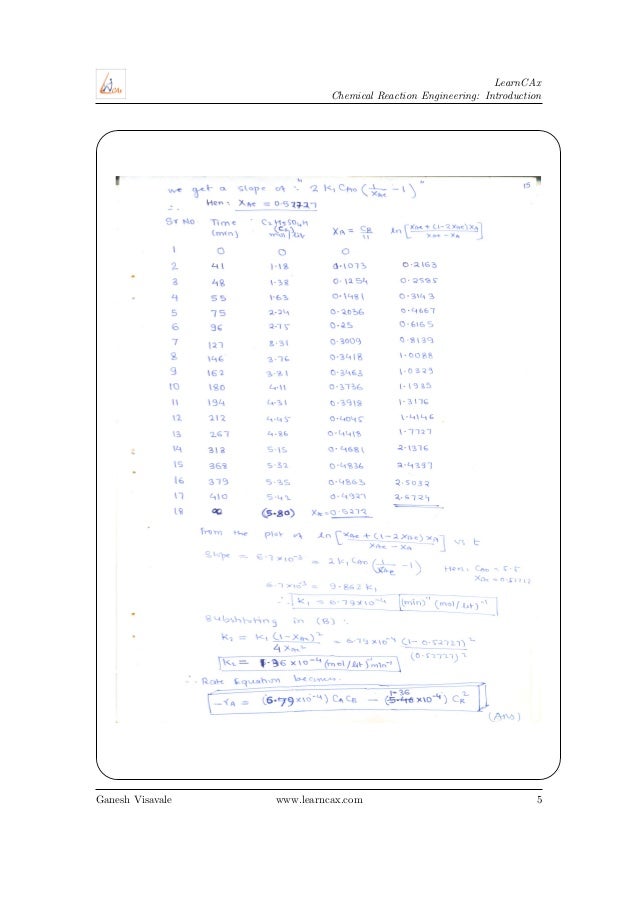 LearnCAx
Chemical Reaction Engineering: Introduction
15
we get a slope of :- " 2 K₁ CAo (1/XAe - 1) "
∴ Here : XAe = 0.52727
Sr No Time (min) C₂H₅SO₄H (CR) mol/lit XA = CR/11 ln [XAe + (1-2XAe)XA / XAe - XA]
1 0 0 0
2 41 1.18 0.1073 0.2163
3 48 1.38 0.1254 0.2585
4 55 1.63 0.1481 0.3143
5 75 2.24 0.2036 0.4667
6 96 2.75 0.25 0.6165
7 127 3.31 0.3009 0.8139
8 146 3.76 0.3418 1.0088
9 162 3.81 0.3463 1.0329
10 180 4.11 0.3736 1.1935
11 194 4.31 0.3918 1.3176
12 212 4.45 0.4045 1.4146
13 267 4.86 0.4418 1.7727
14 318 5.15 0.4681 2.1376
15 368 5.32 0.4836 2.4397
16 379 5.35 0.4863 2.5032
17 410 5.42 0.4927 2.6724
18 ∞ (5.80) XA=0.5272
From the plot of ln [XAe + (1-2XAe) XA / XAe - XA] vs t
Slope = 6.7x10⁻³ = 2K₁CAo (1/XAe - 1) Here: CAo = 5.5
XAe = 0.52727
6.7x10⁻³ = 9.862 K₁
∴ K₁ = 6.79x10⁻⁴ (min)⁻¹ (mol/lit)⁻¹
Substituting in (B) :
K₂ = K₁ (1-XAe)² / 4XAe² = 6.79x10⁻⁴ (1-0.52727)² / (0.52727)²
K₂ = 1.36 x10⁻⁴ (mol/lit)⁻¹ min⁻¹
∴ Rate Equation becomes.
1.36
-rA = (6.79x10⁻⁴) CACB - (5.46 x10⁻⁴) CR²
(Ans)
Ganesh Visavale www.learncax.com 5